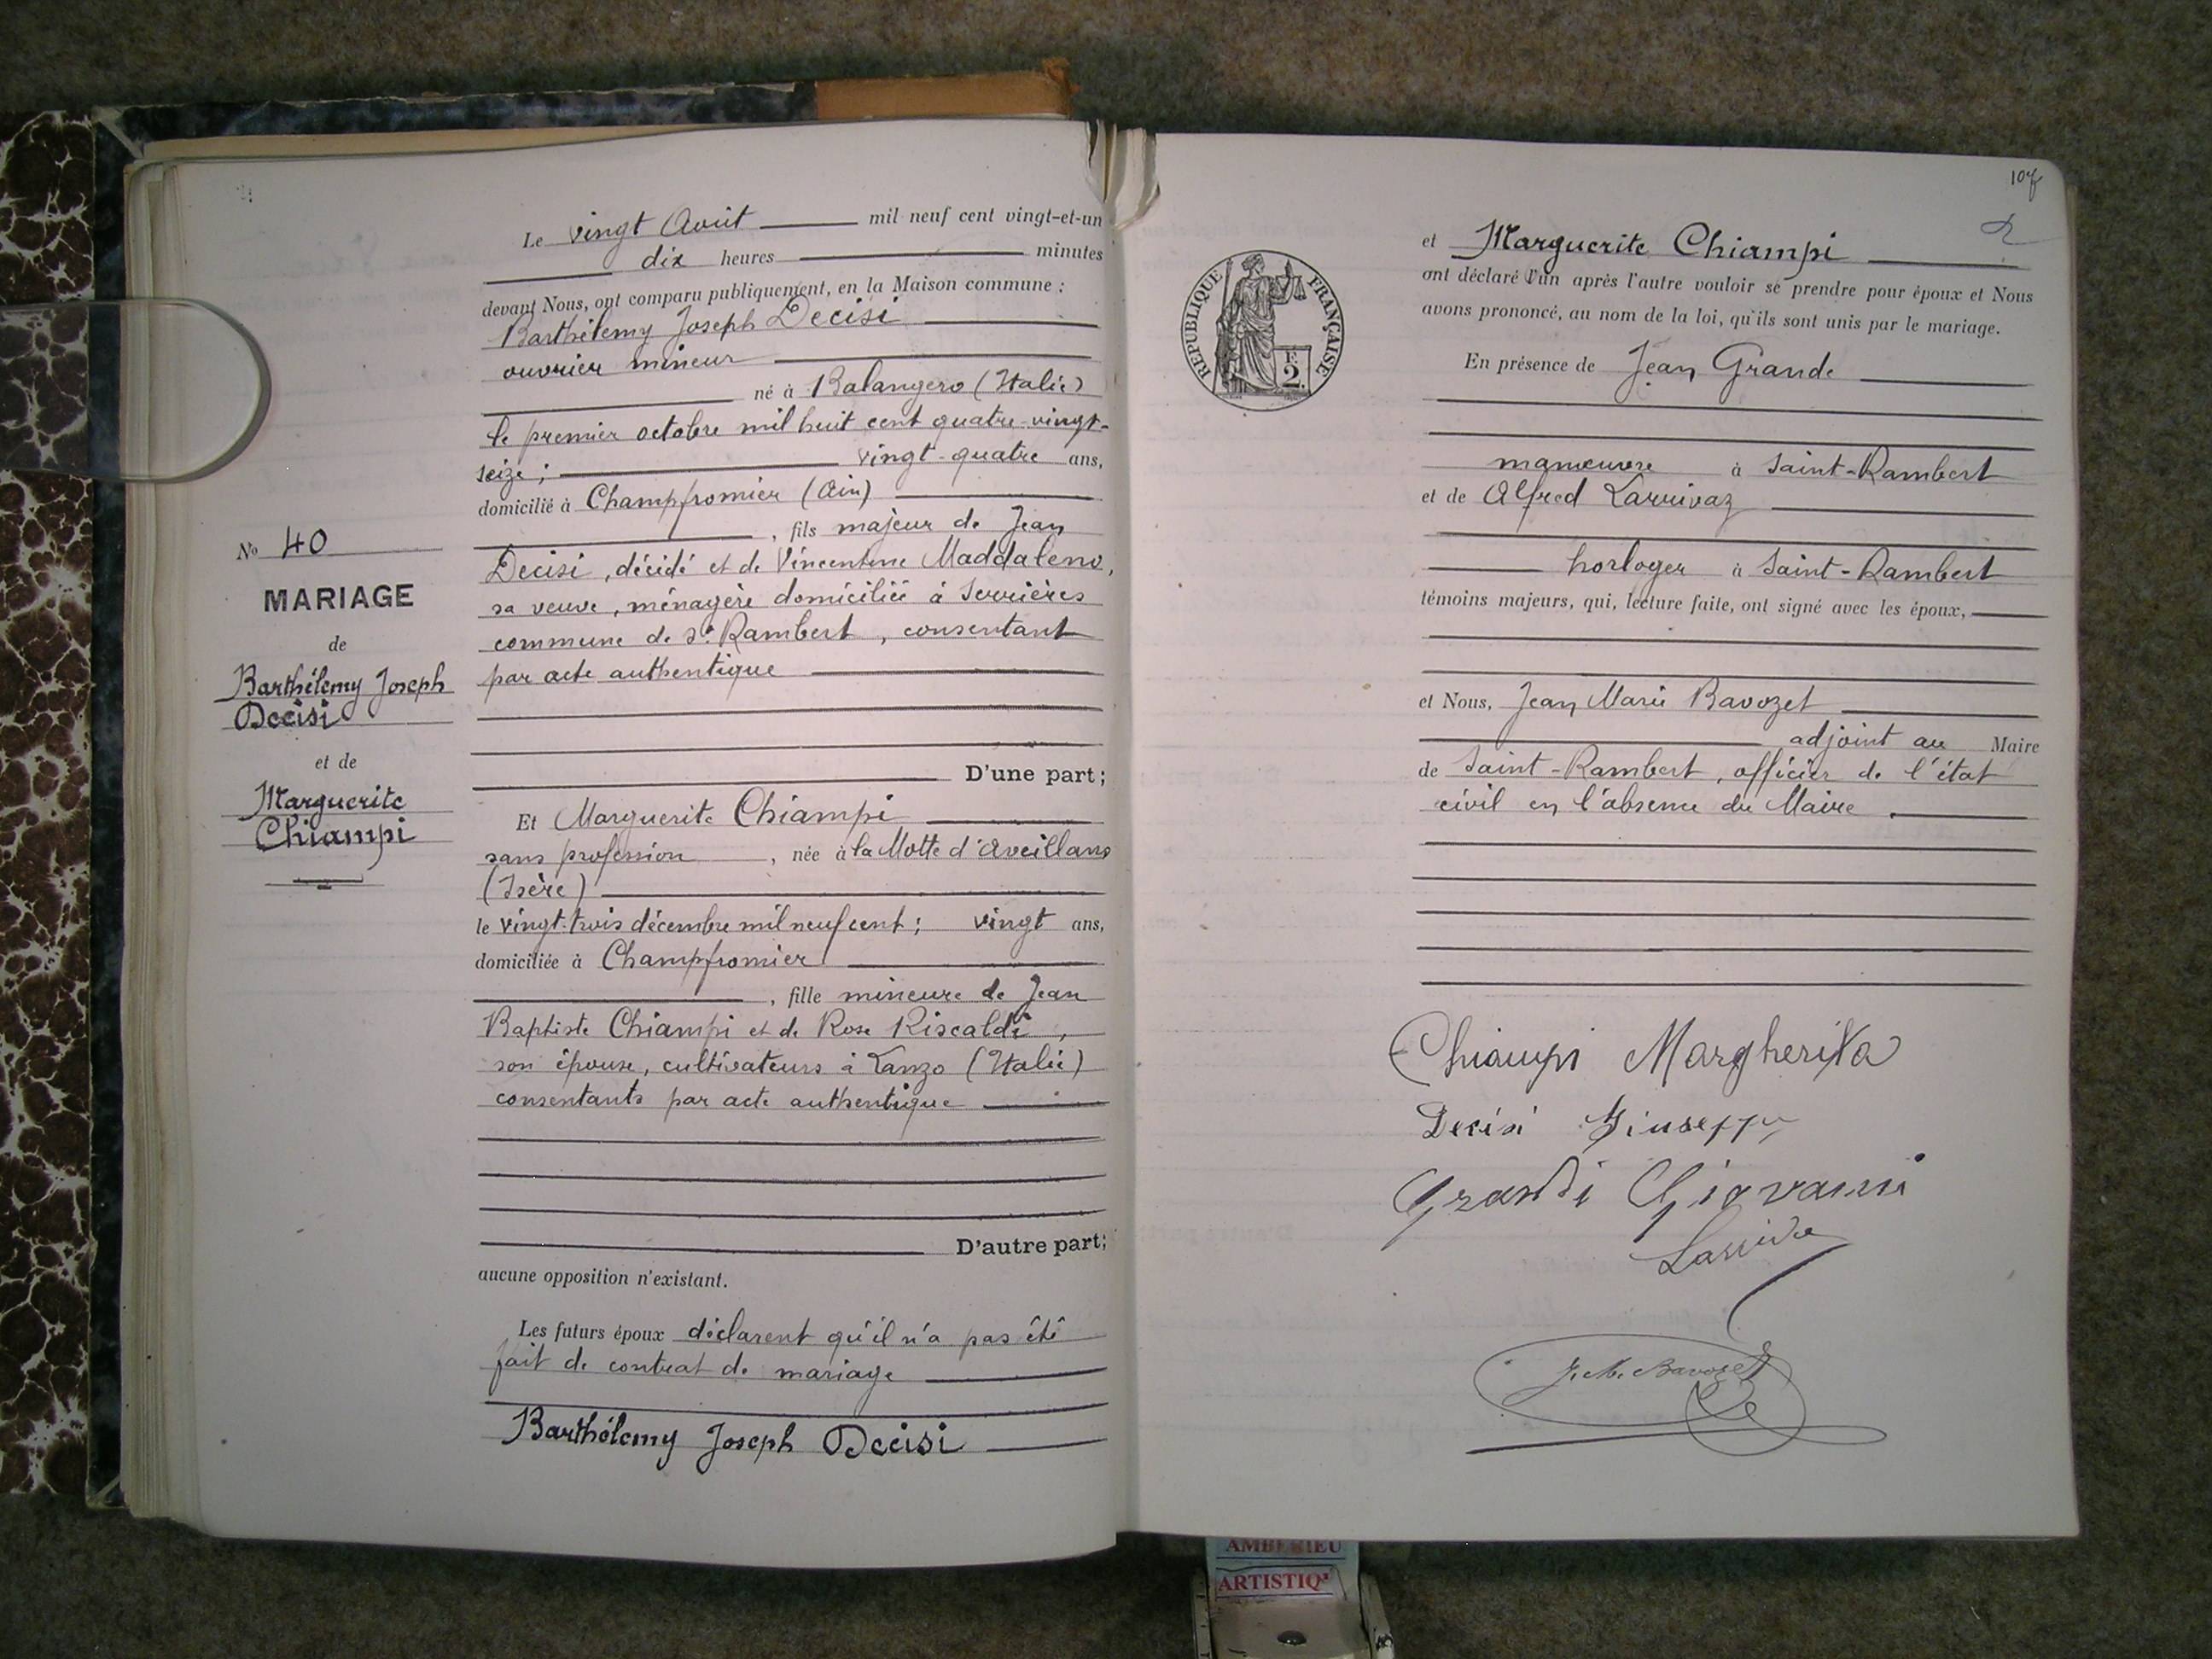 Le vingt Août mil neuf cent vingt-et-un
dix heures minutes
devant Nous, ont comparu publiquement, en la Maison commune :
Barthélemy Joseph Decisi
ouvrier mineur
né à Balangero (Italie)
le premier octobre mil huit cent quatre-vingt-
seize ; vingt-quatre ans,
domicilié à Champfromier (Ain)
, fils majeur de Jean
Decisi, décédé et de Vincentine Maddaleno,
sa veuve, ménagère domiciliée à Serrières
commune de St Rambert, consentant
par acte authentique
D'une part;
No 40
MARIAGE
de
Barthélemy Joseph
Decisi
et de
Marguerite
Chiampi
Et Marguerite Chiampi
sans profession , née à la Motte d'Aveillans
(Isère)
le vingt-trois décembre mil neuf cent ; vingt ans,
domiciliée à Champfromier
, fille mineure de Jean
Baptiste Chiampi et de Rose Riscaldi,
son épouse, cultivateurs à Lanzo (Italie)
consentants par acte authentique
D'autre part;
aucune opposition n'existant.
Les futurs époux déclarent qu'il n'a pas été
fait de contrat de mariage
Barthélemy Joseph Decisi
107
et Marguerite Chiampi
ont déclaré l'un après l'autre vouloir se prendre pour époux et Nous
avons prononcé, au nom de la loi, qu'ils sont unis par le mariage.
RÉPUBLIQUE FRANÇAISE
F.
2.
En présence de Jean Grande
manœuvre à Saint-Rambert
et de Alfred Larrivaz
horloger à Saint-Rambert
témoins majeurs, qui, lecture faite, ont signé avec les époux,
et Nous, Jean Marie Bavozet
adjoint au Maire
de Saint-Rambert, officier de l'état
civil en l'absence du Maire.
Chiampi Margherita
Decisi Giuseppe
Grandi Giovanni
J. M. Bavozet
AMBERIEU
ARTISTIQ